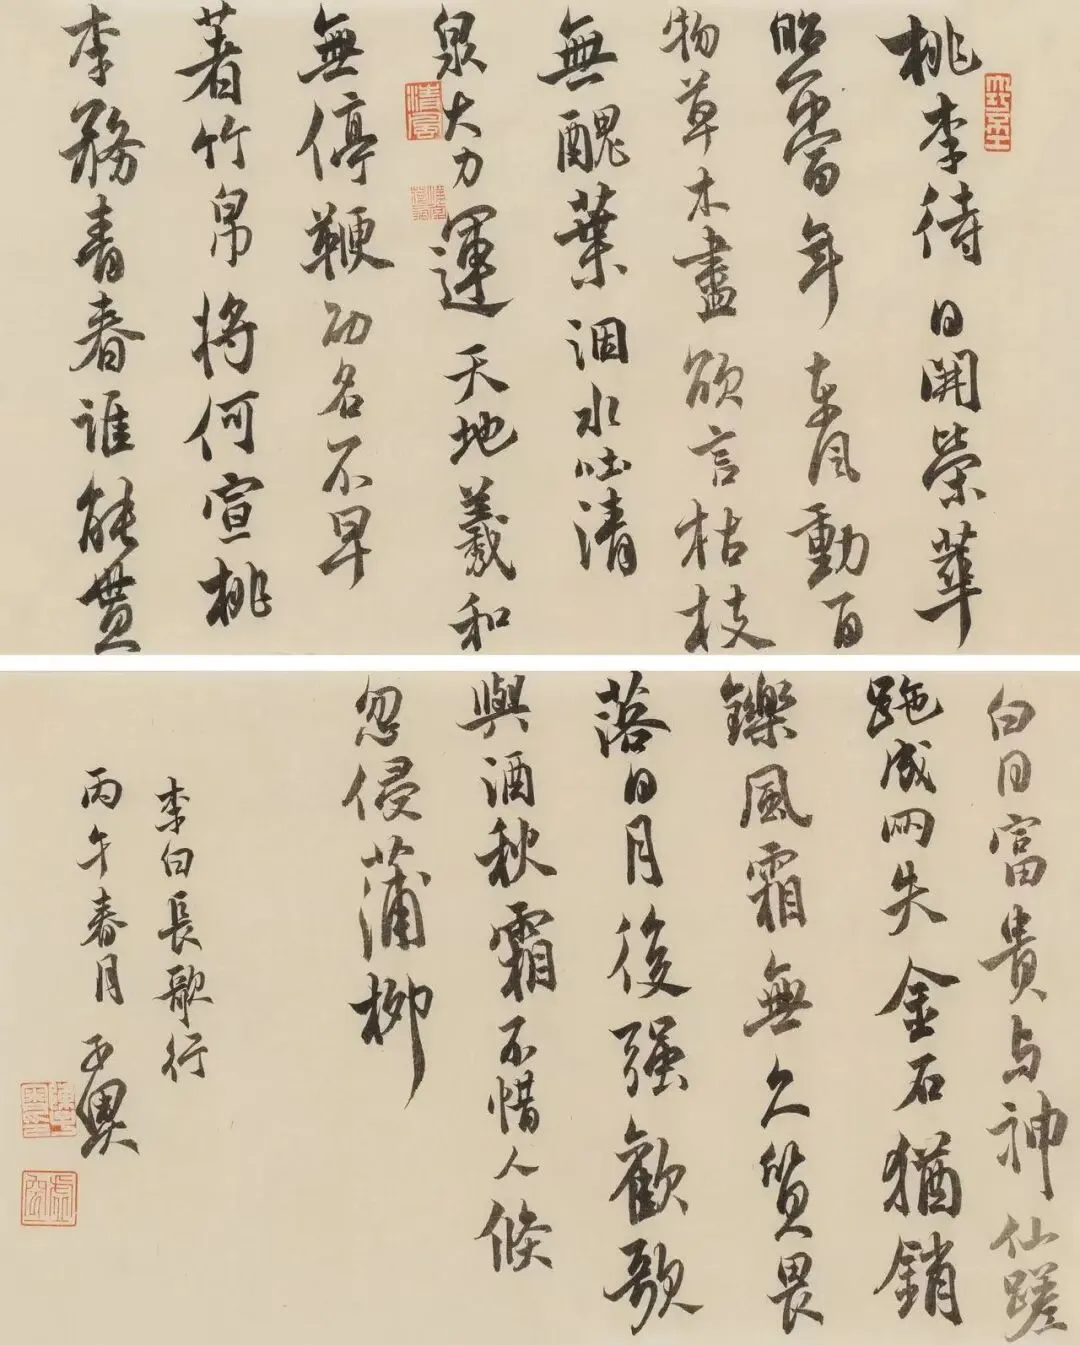 桃李待日開榮華
照當年東風動百
物草木盡欲言枯枝
無醜葉涸水吐清
泉大力運天地羲和
無停鞭功名不早
著竹帛將何宣桃
李務青春誰能貫
白日富貴与神仙蹉
跎成兩失金石猶銷
鑠風霜無久質畏
落日月後强歡歌
與酒秋霜不惜人倏
忽侵蒲柳
李白長歌行
丙午春月